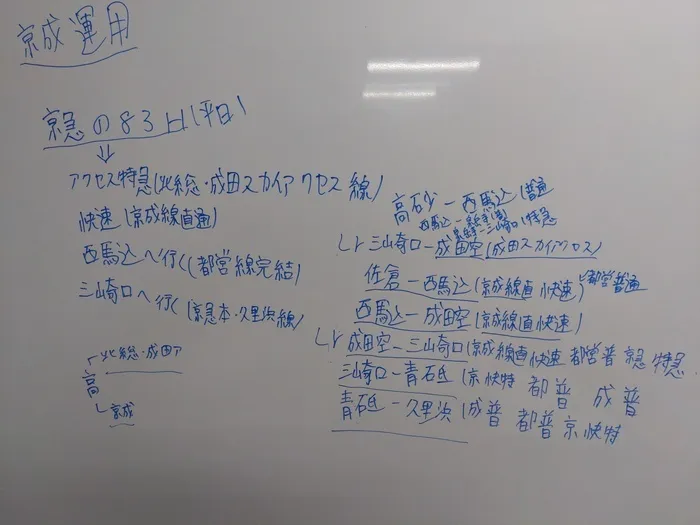 京成運用
京急の83上(平日)
↓
アクセス特急(北総・成田スカイアクセス線)
快速(京成線直通)
西馬込へ行く(都営線完結)
三崎口へ行く(京急本・久里浜線)
高
北総・成田ア
京成
高砂ー西馬込(普通
西馬込ー
三崎口(特急
三崎口ー成田空(成田スカイアクセス)
佐倉ー西馬込(京成線直快速)都営普通
西馬込ー成田空(京成線直快速)
成田空ー三崎口(京成線直快速 都営普 京急 特急
三崎口ー青砥(京快特 都普 成普
青砥ー久里浜(成普 都普京快特